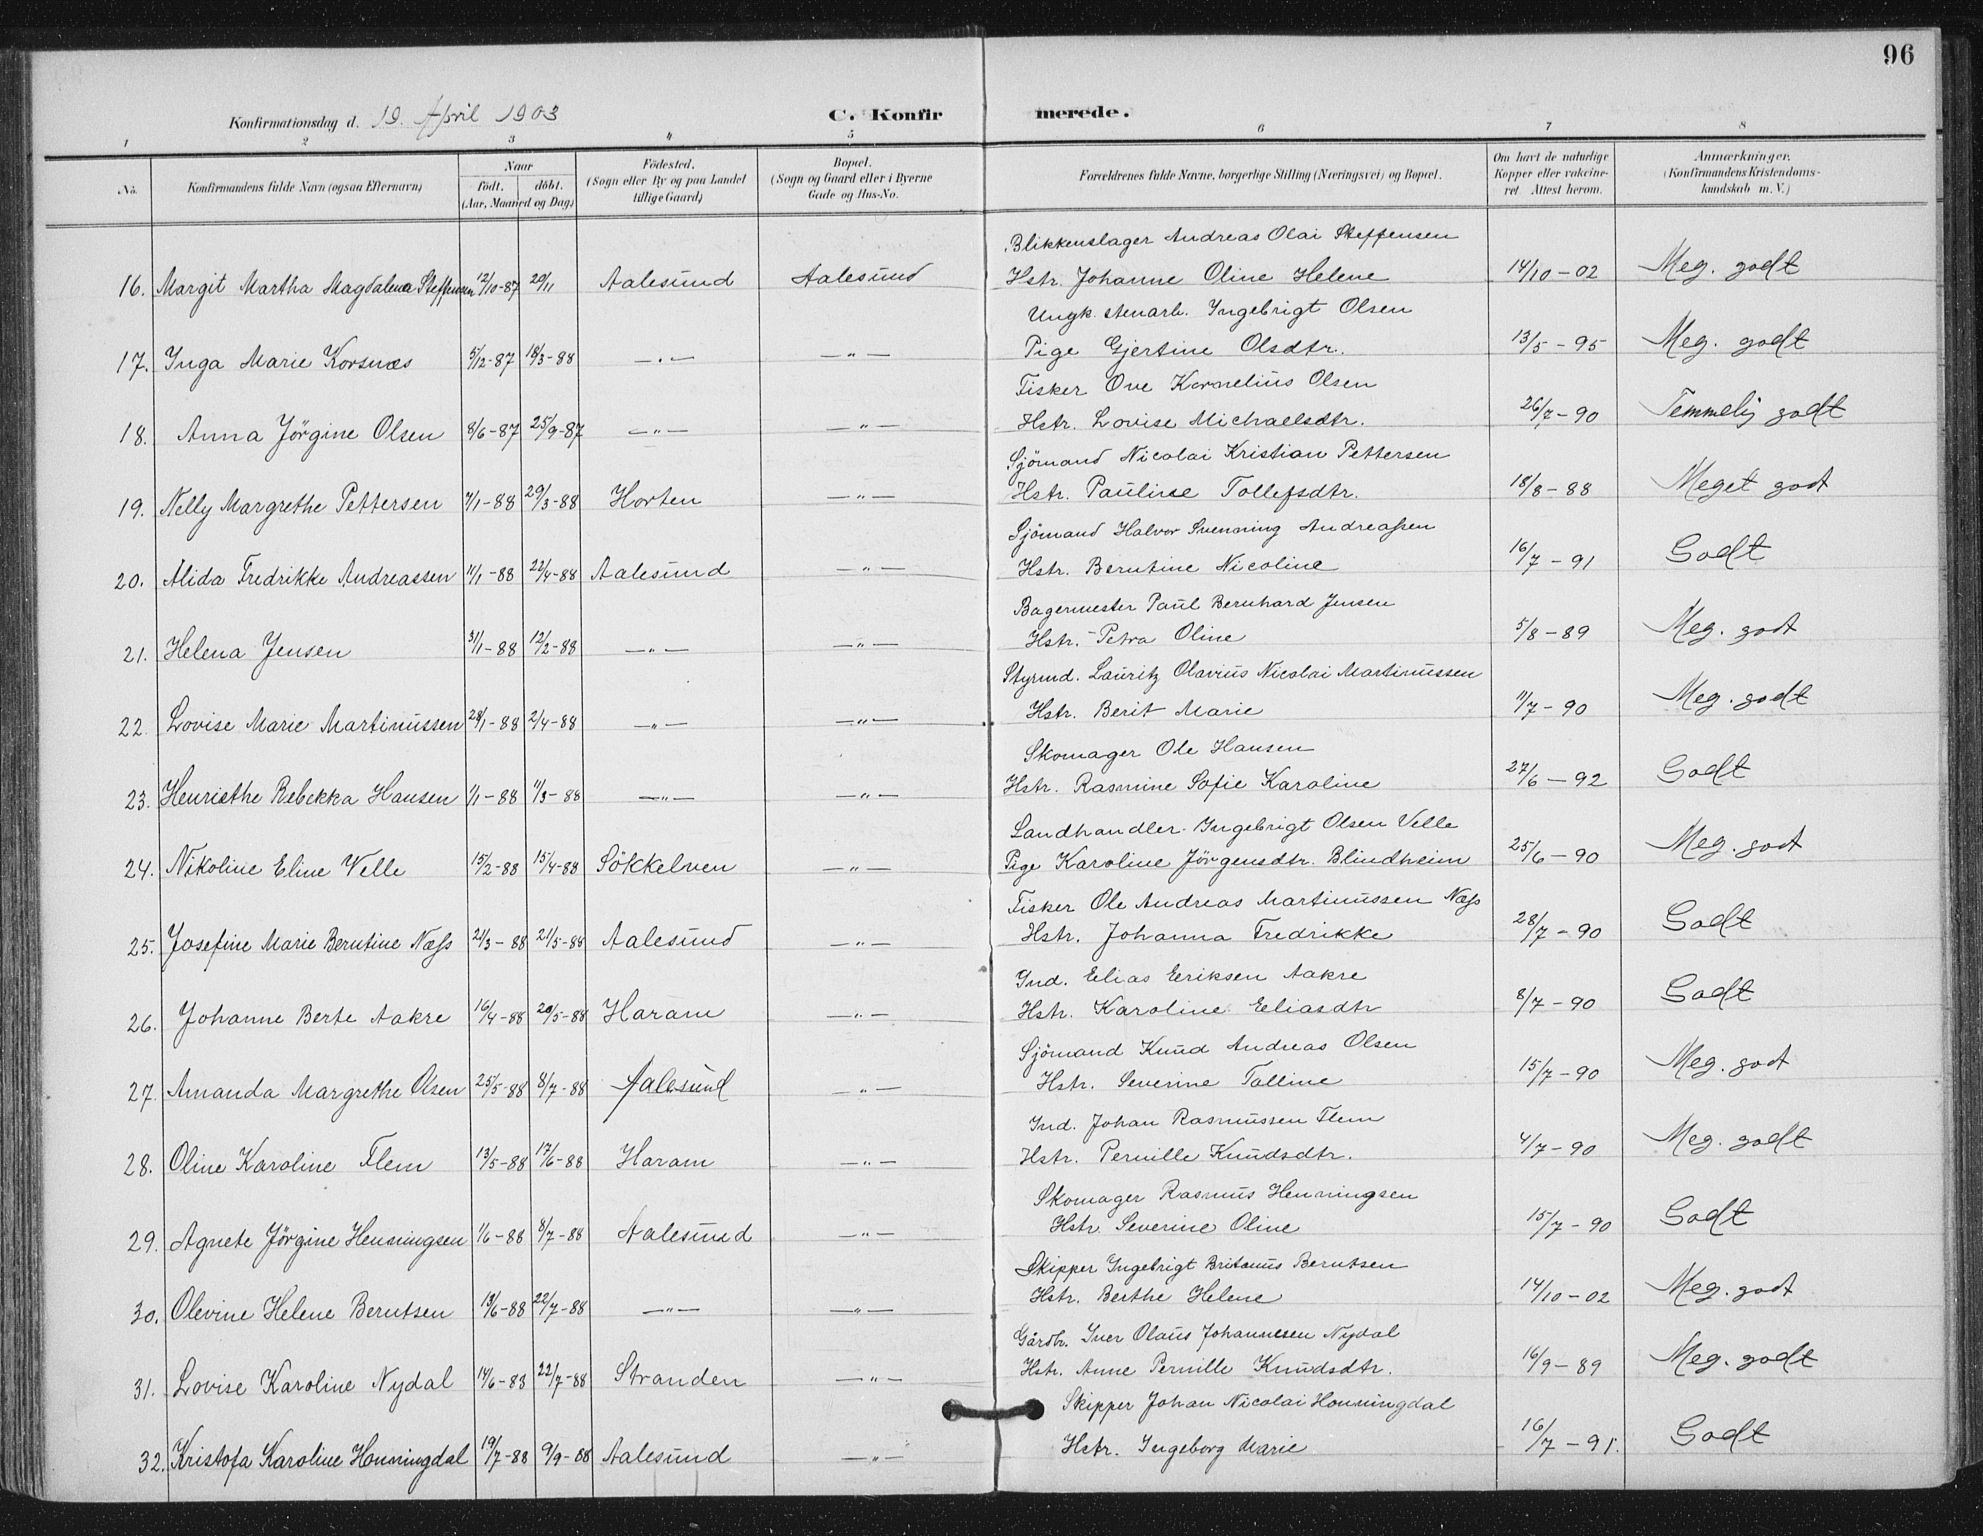 96
Konfirmationsdag d. 19. April 1903 C. Konfir merede.
1 2 3 4 5 6 7 8
No. Konfirmandens fulde Navn (ogsaa Efternavn) Naar født. døbt. (Aar, Maaned og Dag) Födested. (Sogn eller By og paa Landet tillige Gaard) Bopæl. (Sogn og Gaard eller i Byerne Gade og Hus-No. Forældrenes fulde Navne, borgerlige Stilling (Næringsvei) og Bopæl. Om havt de naturlige Kopper eller vakcineret. Attest herom. Anmærkninger. (Konfirmandens Kristendomskundskab m. V.)
Blikkenslager Andreas Olai Steffensen
16. Margit Martha Magdalena Steffensen 12/10-87 20/11 Aalesund Aalesund Hstr. Johanne Oline Helene 14/10-02 Meg. godt
Ungk. stenarb. Ingebrigt Olsen
17. Inga Marie Korsnæs 5/12-87 18/3-88 —„— —„— Pige Gjertine Olsdtr. 13/5-95 Meg. godt
Fisker Ove Kornelius Olsen
18. Anna Jörgine Olsen 8/6-87 25/9-87 —„— —„— Hstr. Lovise Michaelsdtr. 26/7-90 Temmelig godt
Sjömand Nicolai Kristian Pettersen
19. Nelly Margrethe Pettersen 7/1-88 29/3-88 Horten —„— Hstr. Pauline Tollefsdtr. 18/8-88 Meget godt
Sjömand Halvor Svenning Andreassen
20. Alida Fredrikke Andreassen 11/1-88 22/4-88 Aalesund —„— Hstr. Berntine Nicoline 16/7-91 Godt
Bagermester Paul Bernhard Jensen
21. Helena Jensen 31/1-88 12/2-88 —„— —„— Hstr. Petra Oline 5/8-89 Meg. godt
Styrmd. Lauritz Olavius Nicolai Martinussen
22. Lovise Marie Martinussen 28/1-88 2/4-88 —„— —„— Hstr. Berit Marie 11/7-90 Meg. godt
Skomager Ole Hansen
23. Henriethe Rebekka Hansen 1/1-88 11/3-88 —„— —„— Hstr. Rasmine Sofie Karoline 27/6-92 Godt
Landhandler. Ingebrigt Olsen Velle
24. Nikoline Eline Velle 15/2-88 15/4-88 Sökkelven —„— Pige Karoline Jörgensdtr. Blindheim 25/6-90 Meg. godt
Fisker Ole Andreas Martinussen Næss
25. Josefine Marie Berntine Næss 21/3-88 21/5-88 Aalesund —„— Hstr. Johanna Fredrikke 28/7-90 Godt
Ind. Elias Eriksen Aakre
26. Johanne Berte Aakre 16/4-88 20/5-88 Haram —„— Hstr. Karoline Eeliasdtr 8/7-90 Godt
Sjömand Knud Andreas Olsen
27. Amanda Margrethe Olsen 25/5-88 8/7-88 Aalesund —„— Hstr. Severine Talline 15/7-90 Meg. godt
Ind. Johan Rasmussen Flem
28. Oline Karoline Flem 13/5-88 17/6-88 Haram —„— Hstr. Pernille Knudsdtr. 4/7-90 Meg. godt
Skomager Rasmus Henningsen
29. Agnete Jörgine Henningsen 1/6-88 8/7-88 Aalesund —„— Hstr. Severine Oline 15/7-90 Godt
Skipper Ingebrigt Britanus Berntsen
30. Olevine Helene Berntsen 13/6-88 22/7-88 —„— —„— Hstr. Berthe Helene 14/10-02 Meg. godt
Gårdbr. Iver Olaus Johannesen Nydal
31. Lovise Karoline Nydal 14/6-88 22/7-88 Stranden —„— Hstr. Anne Pernille Knudsdtr. 16/9-89 Meg. godt
Skipper Johan Nicolai Honningdal
32. Kristofa Karoline Honningdal 19/7-88 9/9-88 Aalesund —„— Hstr. Ingeborg Marie 16/7-91. Godt